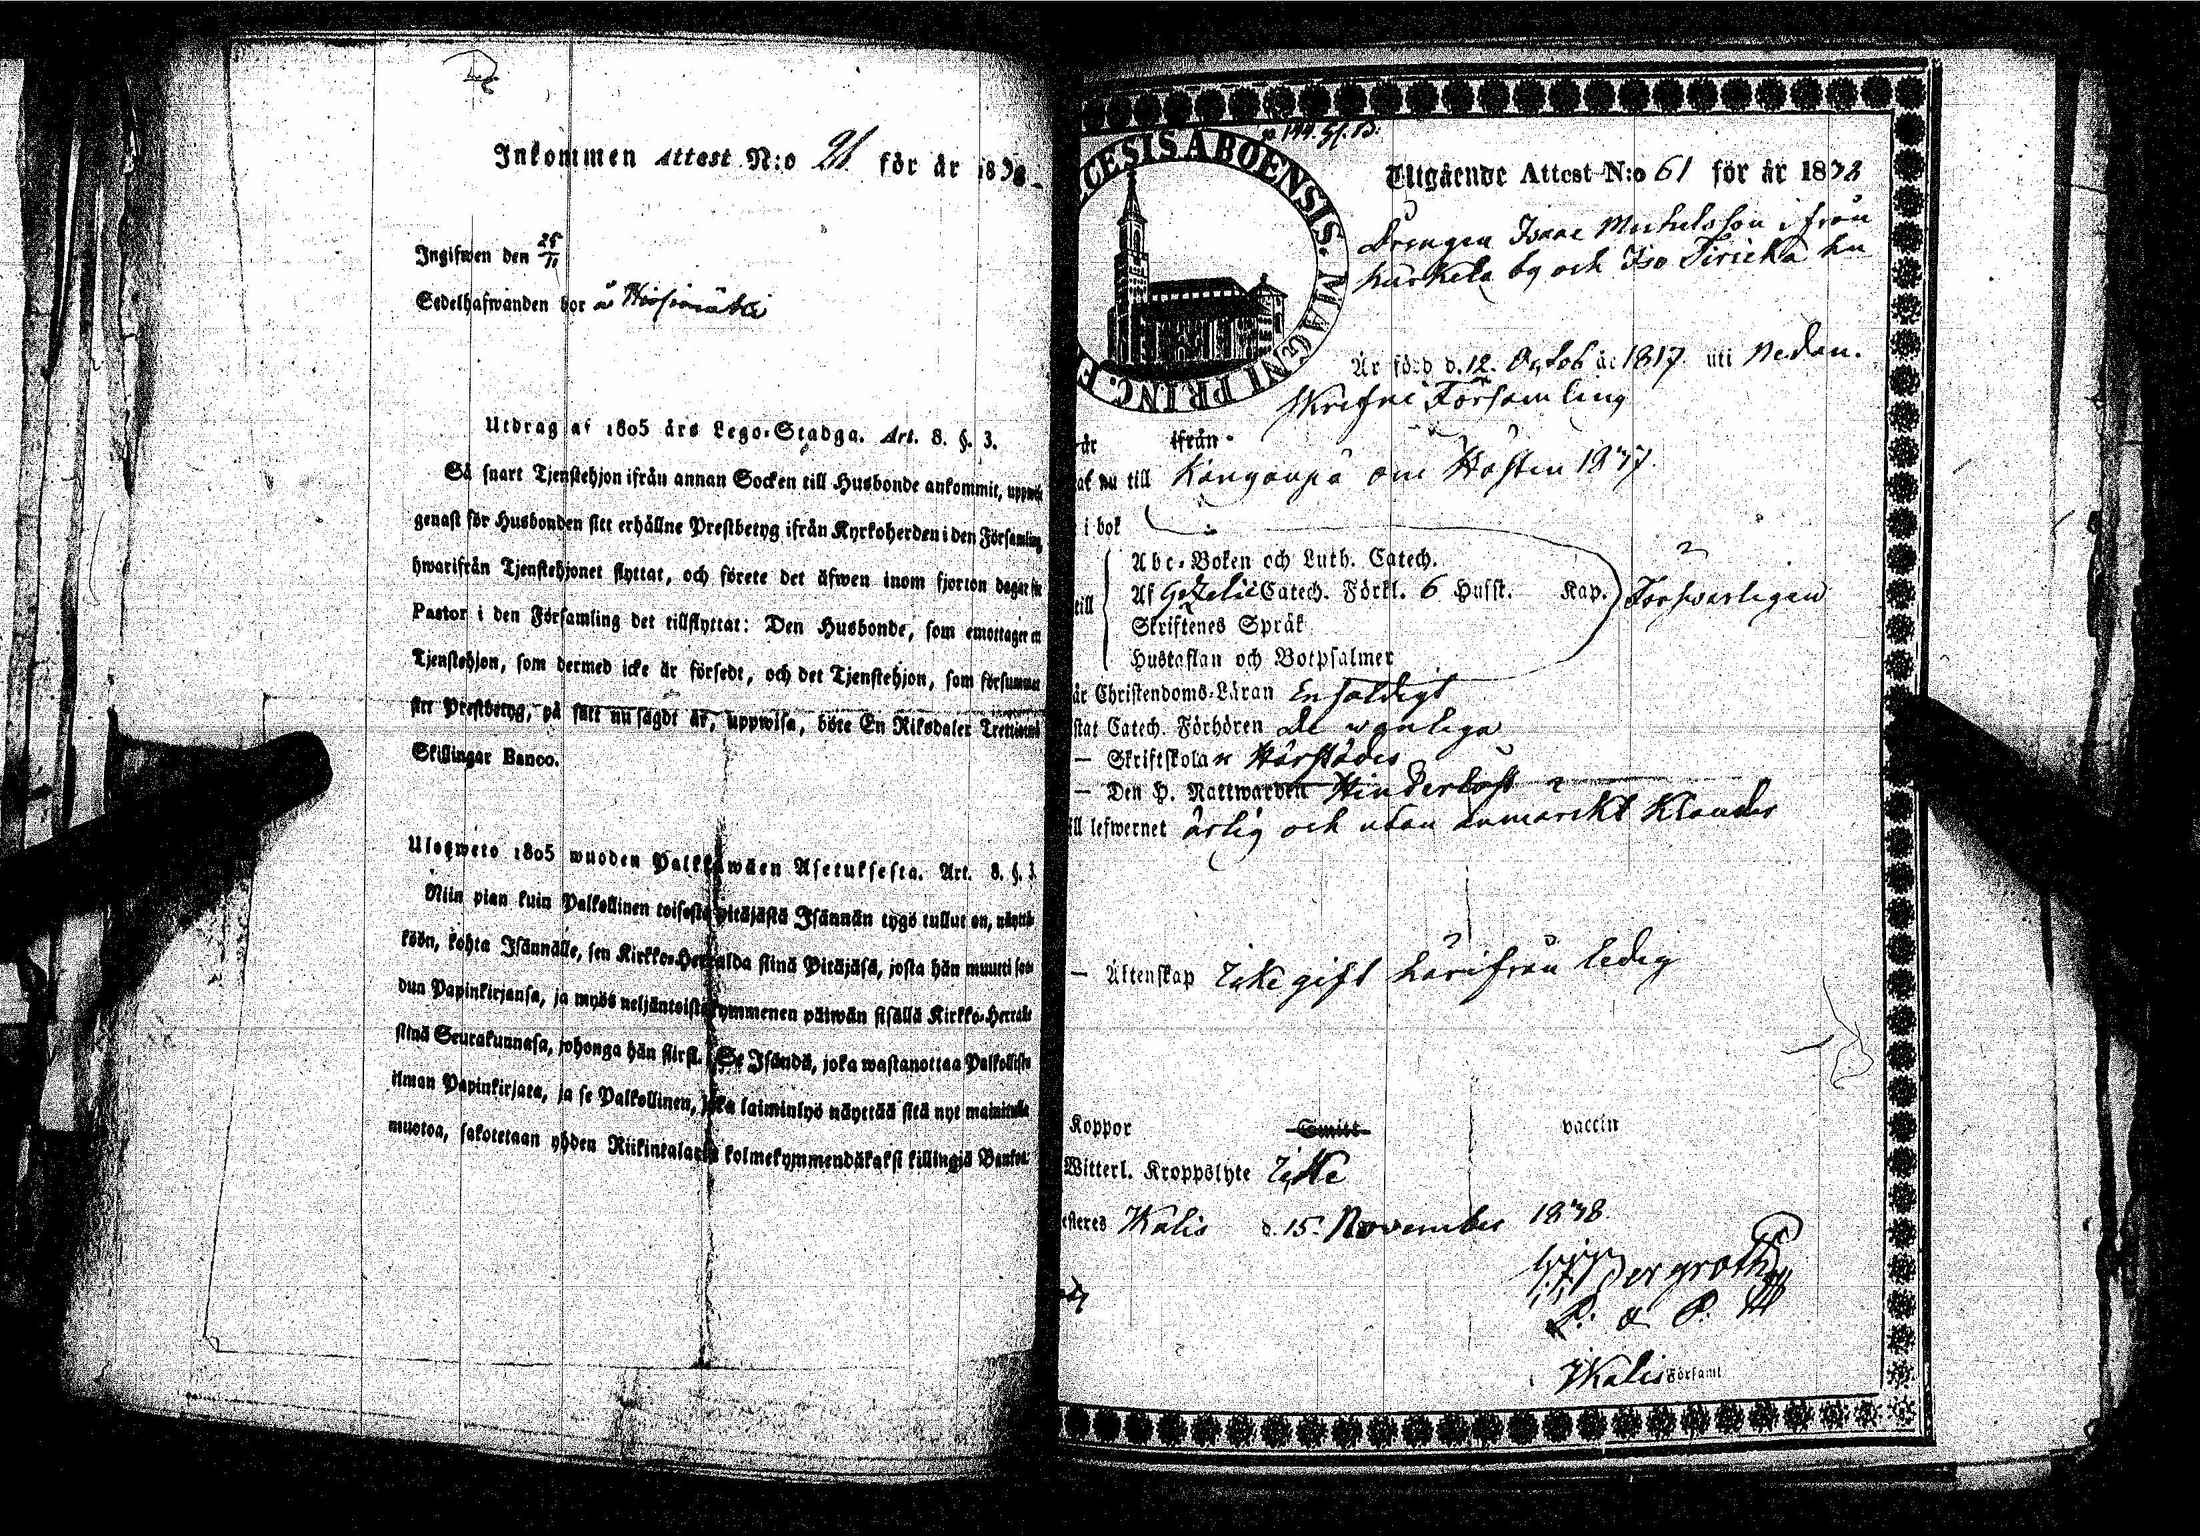 Inkommen Attest N:o 26 för år 1838
Ingifwen den 25/11
Sedelhafwanden bor å
Utdrag af 1805 års Lego-Stadga. Art. 8. §. 3.
Så snart Tjenstehjon ifrån annan Socken till Husbonde ankommit,
genast för Husbonden sitt erhållne Prestbetyg ifrån Kyrkoherden i den Församling
hwarifrån Tjenstehjonet flyttat, och förete det äfwen inom fjorton dagar
Pastor i den Församling det tillflyttat: Den Husbonde, som emottager
Tjenstehjon, som dermed icke är försedt, och det Tjenstehjon, som försummat
sitt Prestbetyg, på sätt nu sagdt är, uppwisa, böte En Riksdaler
Skillingar Banco.
Ulosweto 1805 wuoden Palkkawäen Asetuksesta. Art. 8. §. 3.
Niin pian kuin Palkollinen toisesta pitäjästä Isännän tygö tullut on,
köön, kohta Isännälle, sen Kirkko-Herralda siinä Pitäjäsä, josta hän muutti
dun Papinkirjansa, ja myös neljäntoistakymmenen päiwän sisällä Kirkko-Herralle
siinä Seurakunnasa, johonga hän siirsi. Se Isändä, joka wastanottaa Palkollisen
ilman Papinkirjata, ja se Palkollinen, joka laiminlyö näyttää sitä nyt mainitulla
muotoa, sakotetaan yhden Riikintalarin kolmekymmendäkaksi killingiä Bankos.
DIOECESIS ABOENSIS. MAGNI PRINC. F
Utgående Attest N:o 61 för år 1838
Drengen Isaac Michelsson ifrån
Kurkela by och Iso Sirickä
Är född d. 12. Octob år 1817. uti nedan-
skrefne Församling
ifrån
nu till Kanganpä om Hösten 1837.
i bok
Abc-Boken och Luth. Catech.
Af Gezelii Catech. Förkl. 6 Husst. Kap. Försvarligen
Skriftenes Språk
Hustaflan och Botpsalmer
Christendoms-Läran Enfaldigt
Catech. Förhören de vanliga
— Skriftskolan Härstädes
— Den H. Nattwarden Hinderlöst
lefwernet ärlig och utan anmärkt Klander
— Äktenskap Icke gift härifrån ledig
Koppor Smitt vaccin
Witterl. Kroppslyte Icke
Wålis d. 15. November 1838
Bergroth
P. & P.
Församl.